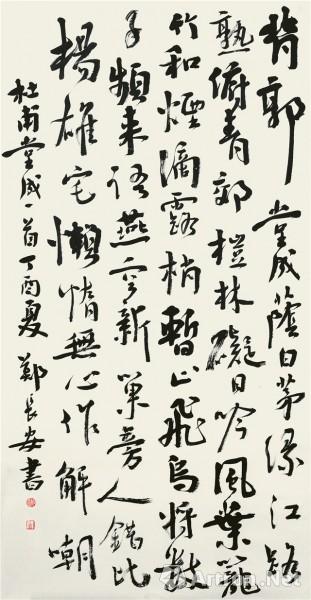 背郭堂成蔭白茅緣江路
熟俯青郊榿林礙日吟風葉籠
竹和煙滴露梢暫止飛烏將數
子頻來語燕定新巢旁人錯比
楊雄宅懶惰無心作解嘲
杜甫堂成一首丁酉夏鄭長安書
Artron.Net